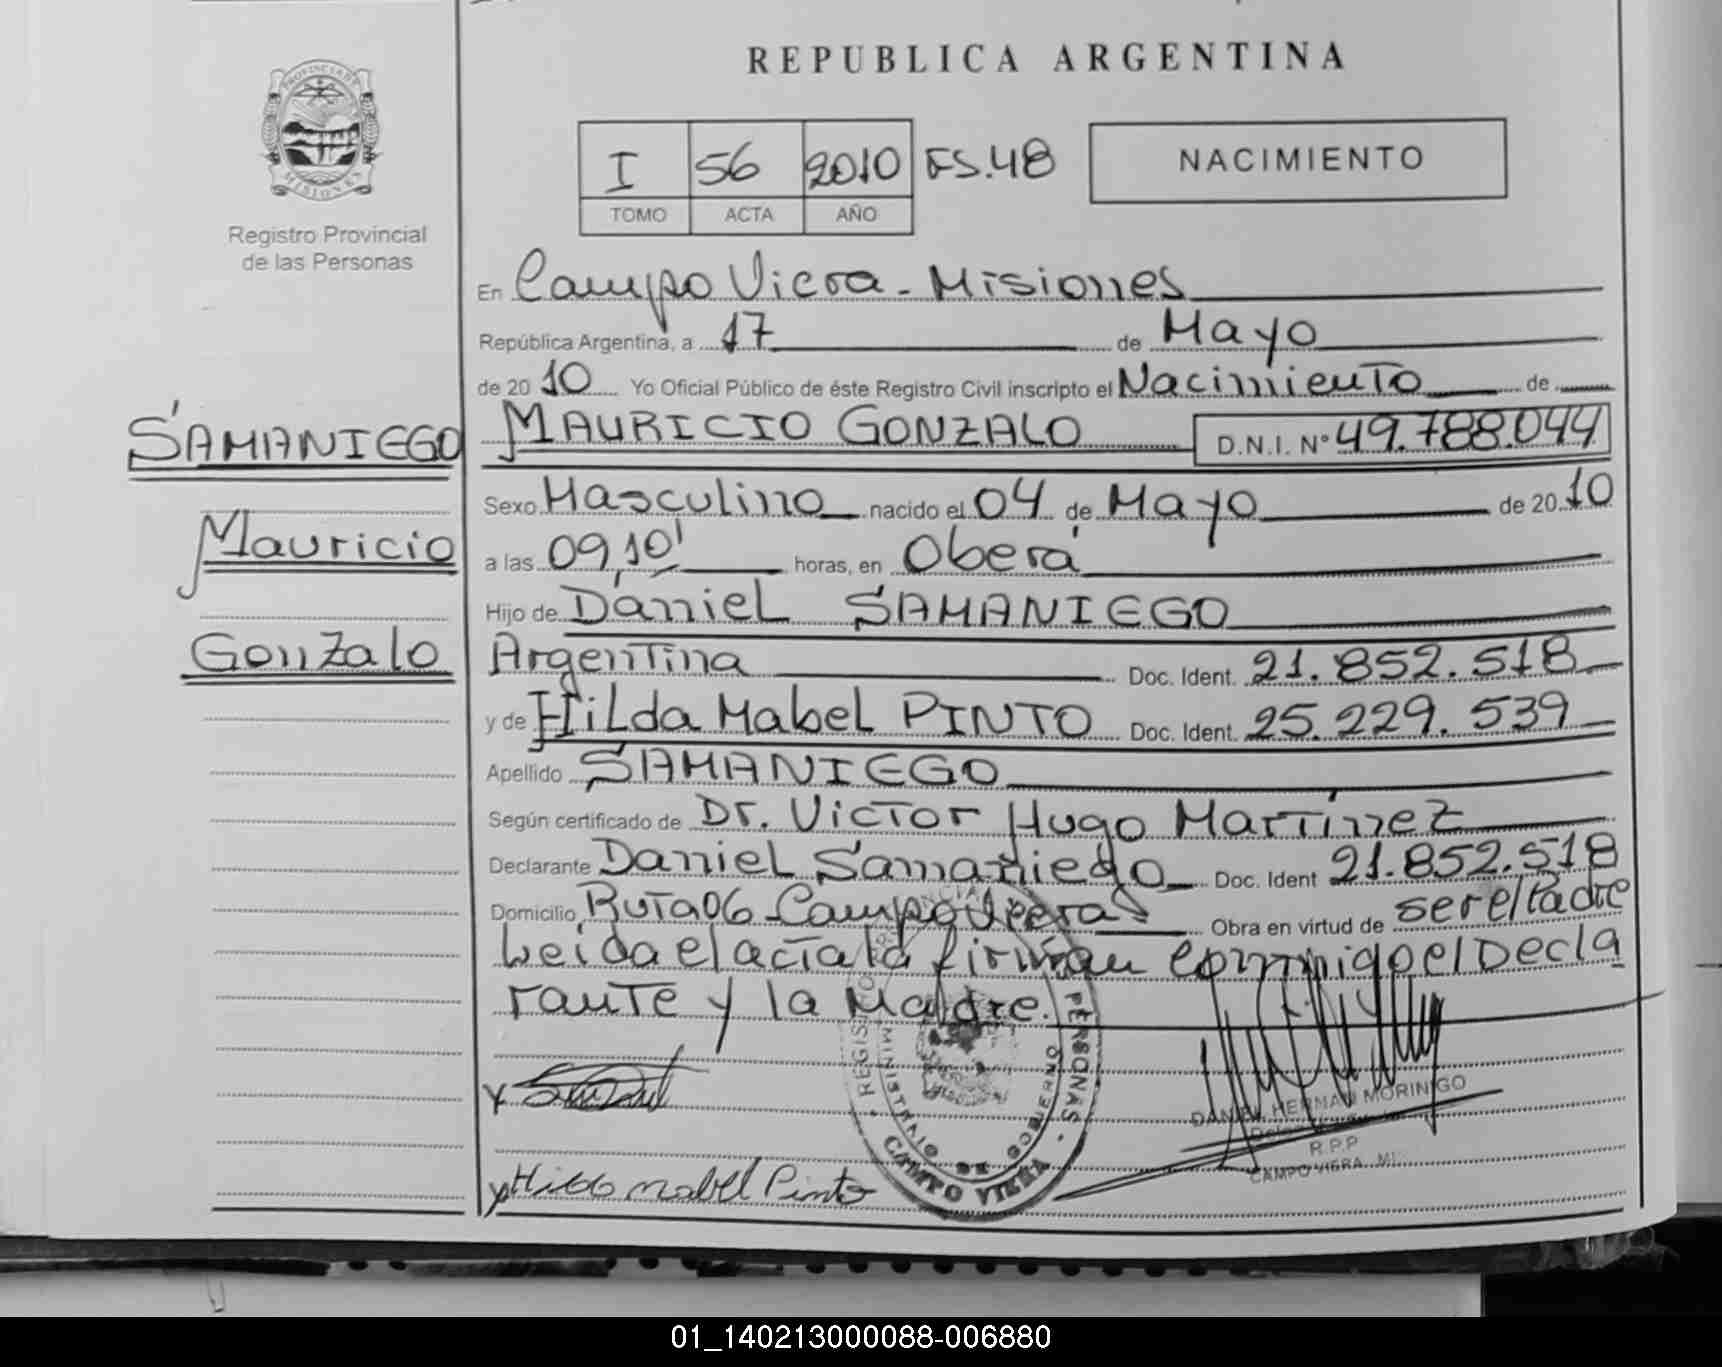 REPUBLICA ARGENTINA
PROVINCIA DE MISIONES
Registro Provincial
de las Personas
I 56 2010 FS.48
TOMO ACTA AÑO
NACIMIENTO
En Campo Viera - Misiones
República Argentina, a 17 de Mayo
de 20 10 Yo Oficial Público de éste Registro Civil inscripto el Nacimiento de
SAMANIEGO
Mauricio
Gonzalo
MAURICIO GONZALO D.N.I. N° 49.788.044
Sexo Masculino nacido el 04 de Mayo de 20 10
a las 09,10' horas, en Oberá
Hijo de Daniel SAMANIEGO
Argentina Doc. Ident. 21.852.518
y de Hilda Mabel PINTO Doc. Ident. 25.229.539
Apellido SAMANIEGO
Según certificado de Dr. Victor Hugo Martínez
Declarante Daniel Samaniego Doc. Ident 21.852.518
Domicilio Ruta 06 Campo Viera Obra en virtud de ser el Padre
Leida el acta la firman conmigo el Decla
rante y la Madre.
REGISTRO PERSONAS
MINISTERIO DE GOBIERNO
CAMPO VIERA
DANIEL HERNAN MORINIGO
R.P.P
CAMPO VIERA
Hilda Mabel Pinto
01_140213000088-006880